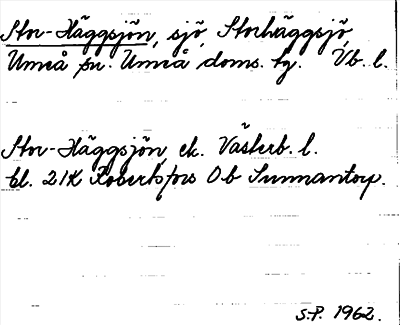 Stor-Häggsjön, sjö, Storhäggsjö,
Umeå sn. Umeå doms. tg. Vb. l.
Stor-Häggsjön, ek. Västerb. l.
bl. 21K Robertsfors Ob Sunnantorp.
S.P. 1962.